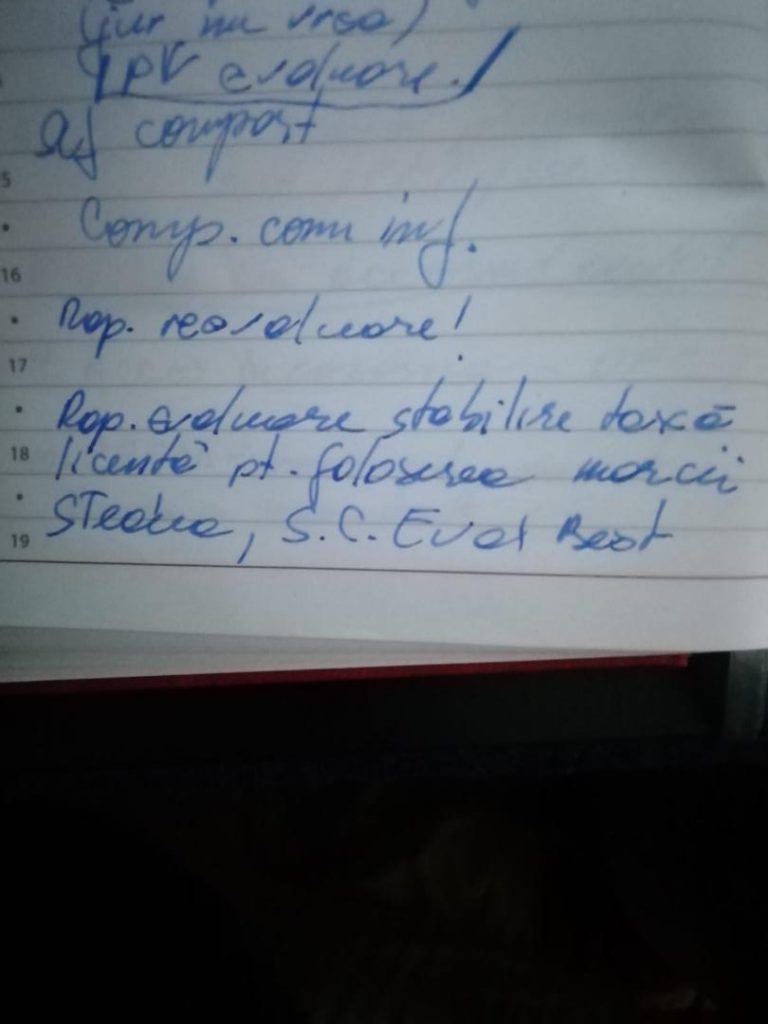 (jur nu vrea)
PV evaluare.
compart
5
Comp. com inf.
16
Rap. reevaluare!
17
Rap. evaluare stabilire taxă
18 licență pt. folosirea mărcii
19 Steaua, S.C. Eval Best